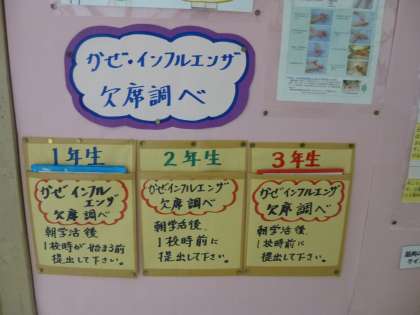 かぜ・インフルエンザ
欠席調べ
1年生
かぜインフル
エンザ
欠席調べ
朝学活後
1校時が始まる前
提出して下さい。
2年生
かぜインフルエンザ
欠席調べ
朝学活後、
1校時前に
提出して下さい。
3年生
かぜインフルエンザ
欠席調べ
朝学活後
1校時前に
提出して下さい。